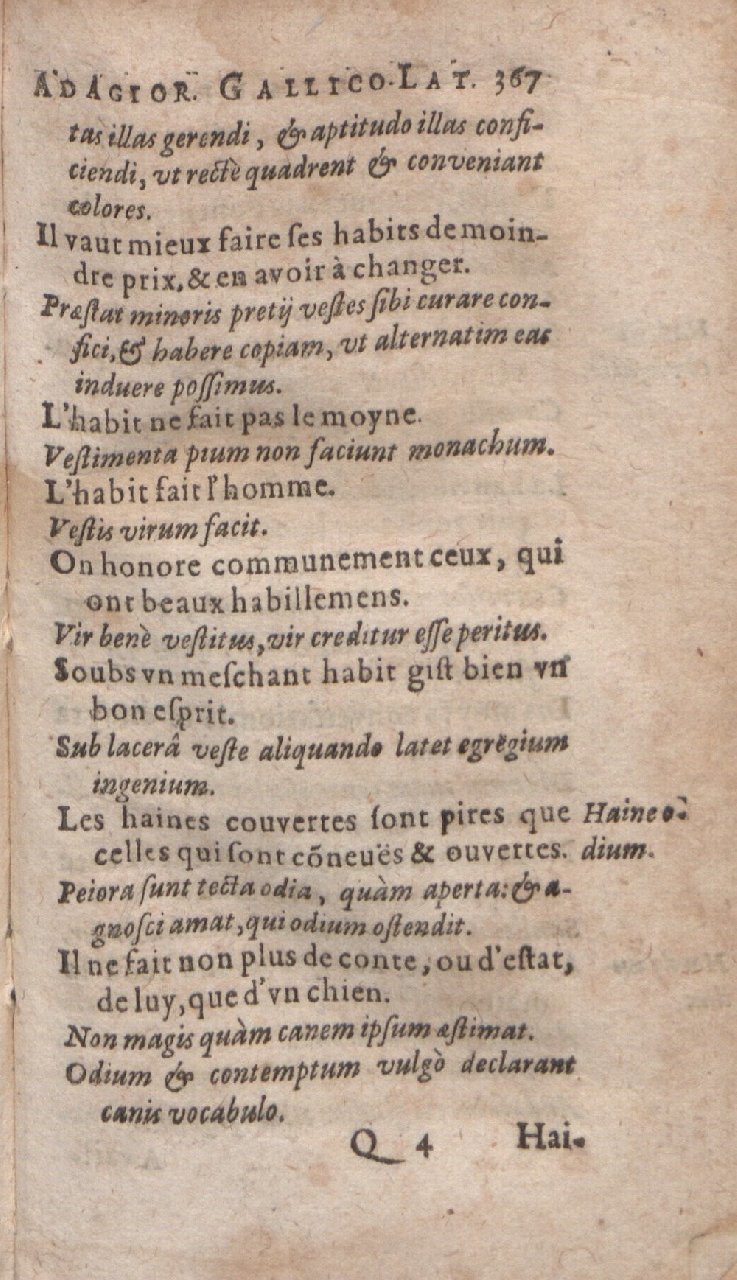 ADAGIOR. GALLICO-LAT. 367
tas illas gerendi, & aptitudo illas confi-
ciendi, vt rectè quadrent & conveniant
colores.
Il vaut mieux faire ſes habits de moin-
dre prix, & en avoir à changer.
Præſtat minoris pretij veſtes ſibi curare con-
fici, & habere copiam, vt alternatim eas
induere poſſimus.
L'habit ne fait pas le moyne.
Veſtimenta pium non faciunt monachum.
L'habit fait l'homme.
Veſtis virum facit.
On honore communement ceux, qui
ont beaux habillemens.
Vir benè veſtitus, vir creditur eſſe peritus.
Soubs vn meſchant habit giſt bien vn
bon eſprit.
Sub lacerâ veſte aliquando latet egregium
ingenium.
Les haines couvertes ſont pires que Haine o-
celles qui ſont cõneuës & ouvertes. dium.
Peiora ſunt tecta odia, quàm aperta: & a-
gnoſci amat, qui odium oſtendit.
Il ne fait non plus de conte, ou d'eſtat,
de luy, que d'vn chien.
Non magis quàm canem ipſum æſtimat.
Odium & contemptum vulgò declarant
canis vocabulo.
Q 4 Hai-